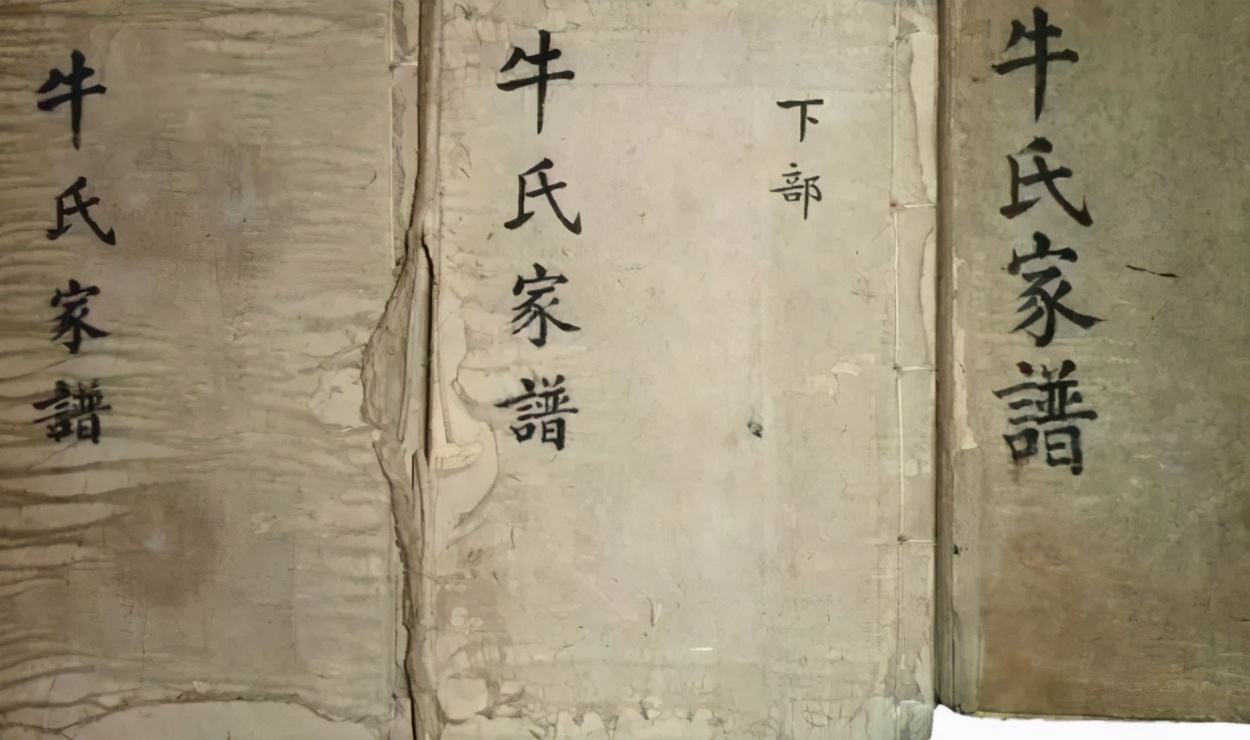 牛氏家譜
下部
牛氏家譜
牛氏家譜